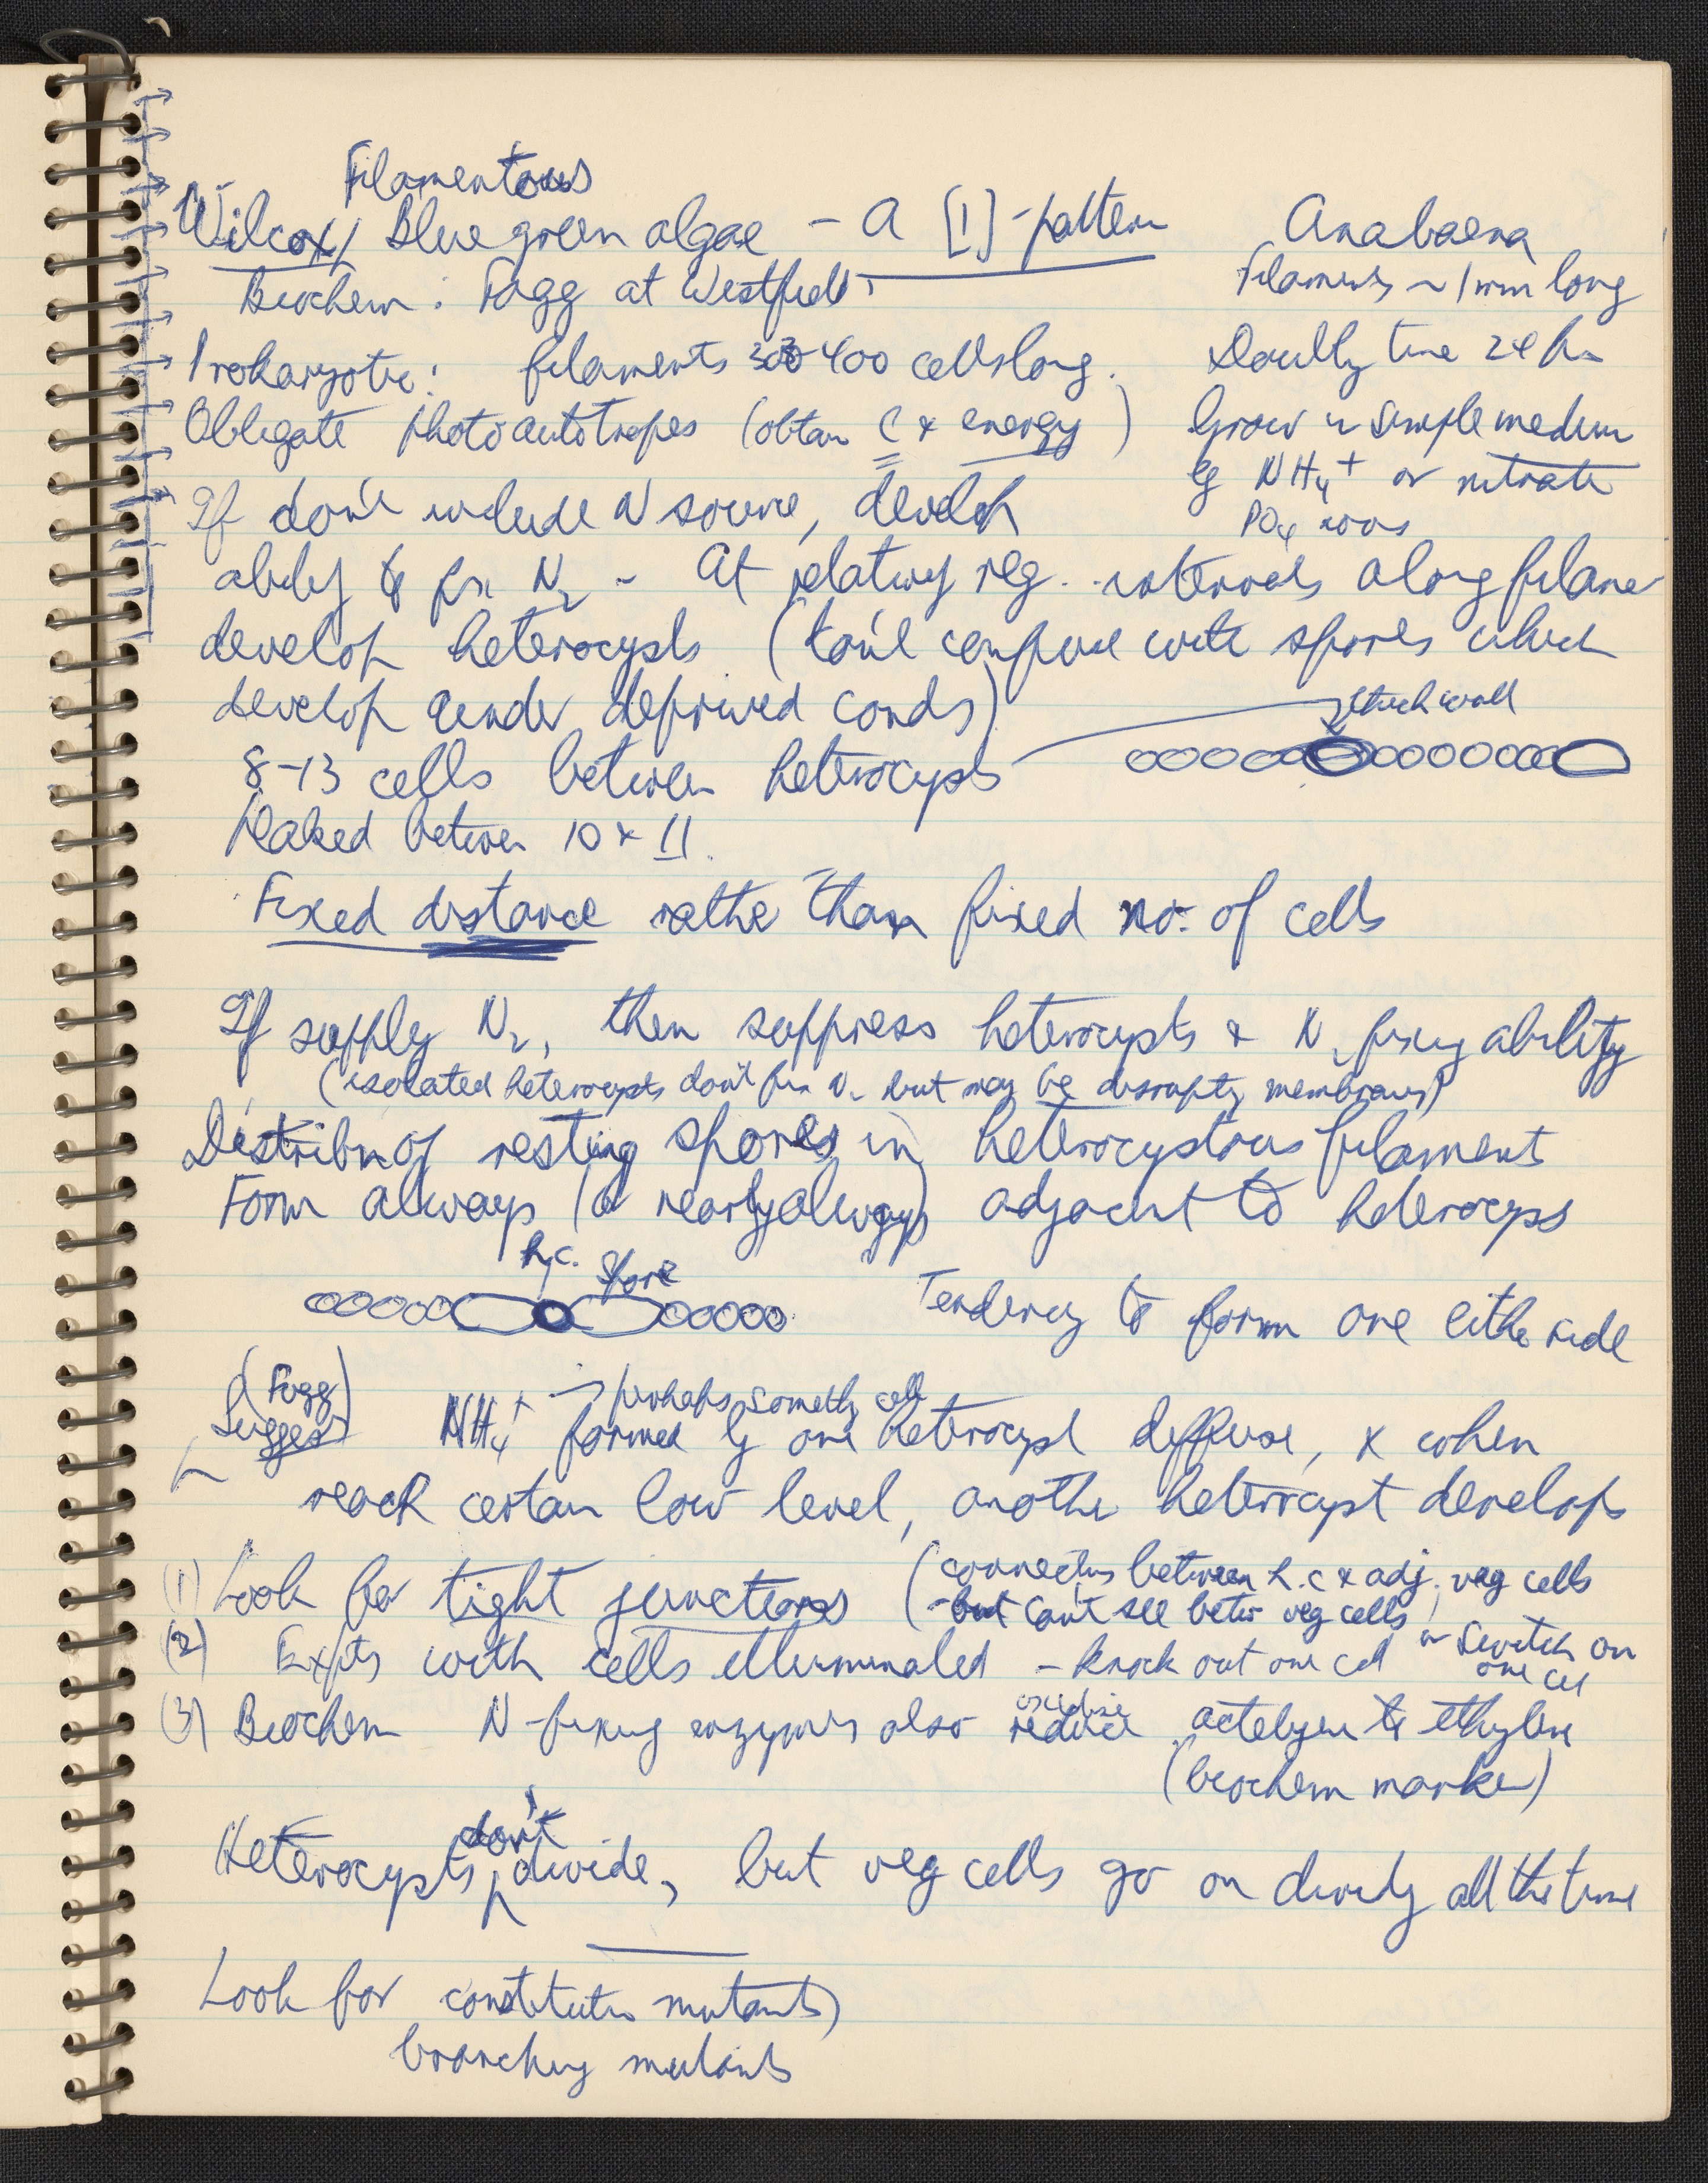 Filamentous
Wilcox/ Blue green algae - a [1]-pattern
Biochem: Fogg at Westfield.
Anabaena
Filaments ~ 1 mm long
Prokaryotic: filaments 300 400 cells long.
Doubly time 24 hr
Obligate photoautotropes (obtain C & energy)
Grow in simple medium
eg NH4+ or nitrate
PO4 ions
If don't include N source, develop
ability to fix N2 - At relativey reg. intervals along filame
develop heterocysts (don't confuse with spores which
develop under deprived conds)
thick wall
8-13 cells between heterocysts
Peaked between 10 & 11.
Fixed distance rathe than fixed no. of cells
If supply N2, then suppress heterocysts & N2 fixing ability
(isolated heterocysts don't fix N2 but may be disrupting membranes)
Distribn of resting spores in heterocystous filaments
Form always (or nearly always) adjacent to heterocyss
h.c. Spore
Tendency to form one eithe side
(Fogg)
Suggest
→ perhaps somethg else
NH4+ formed by one heterocyst diffuse, & when
reach certain low level, anothe heterocyst develops
(1) Look for tight junctions (connectns between h.c & adj. veg cells
- but can't see betw veg cells)
(2) Expts with cells illuminated - knock out one cell or switch on
one cell
(3) Biochem N-fixing enzymes also reduce actelyene to ethylene
oxidise
(biochem marker)
Heterocysts don't divide, but veg cells go on dividg all the time
Look for constitutive mutants
branching mutants